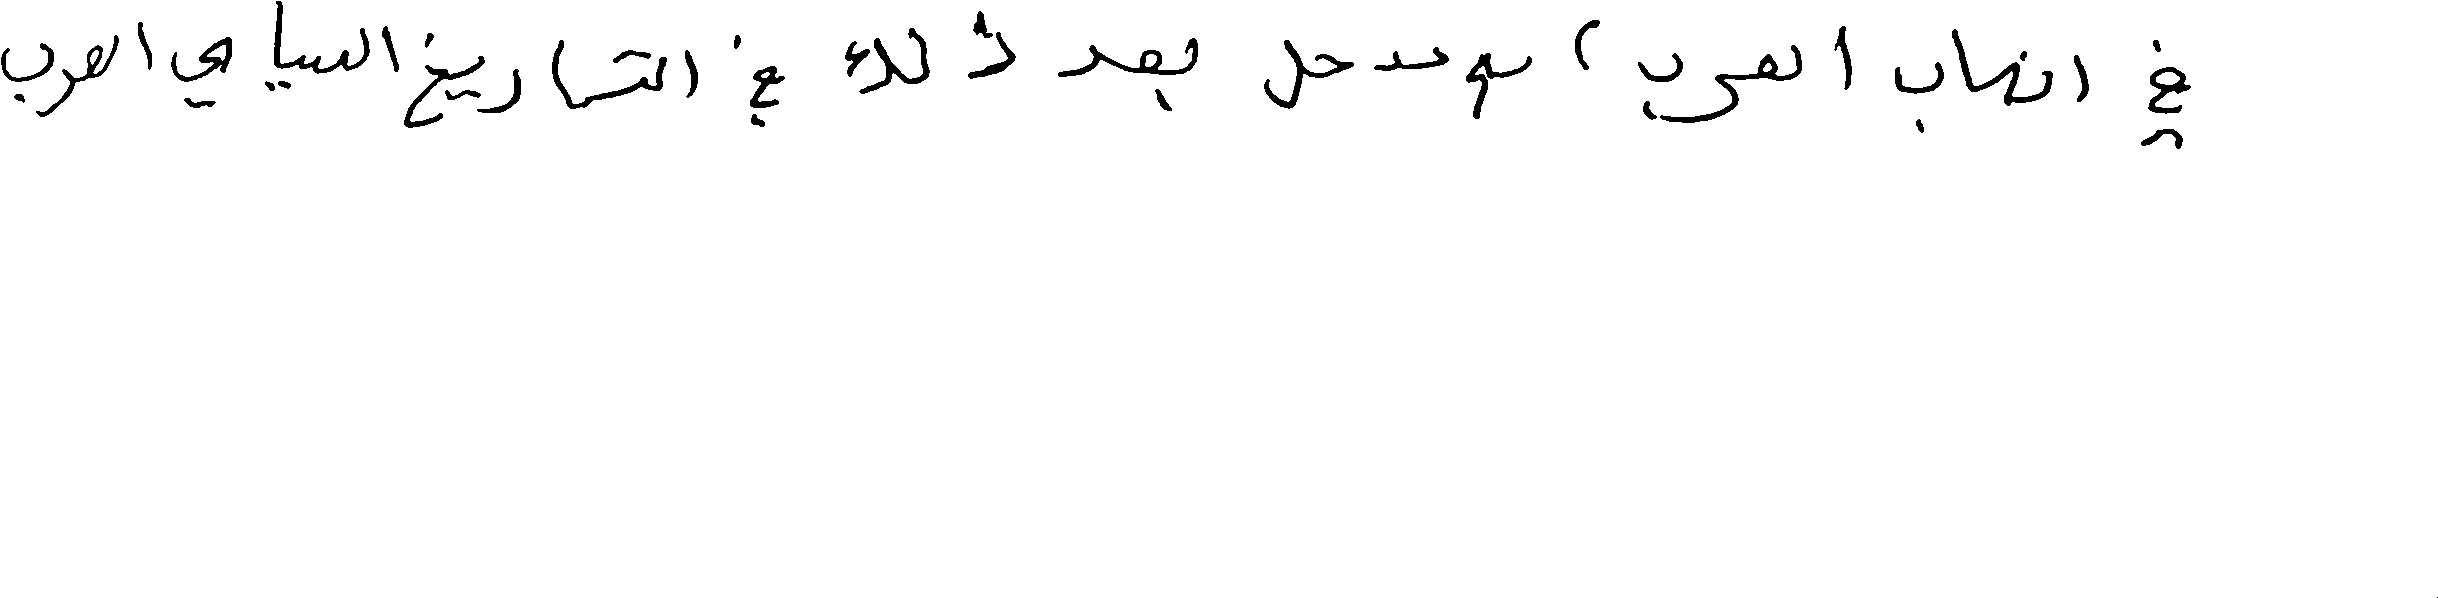 في انساب العرب ، ثم ندخل بعد ذلك في التاريخ السياسي العرب